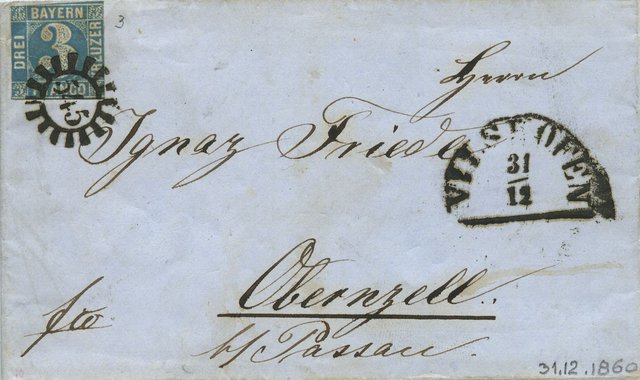 BAYERN
DREI 3 KREUZER
545
3
Herrn
Ignaz Friede
VILSHOFEN
31
12
Obernzell.
b/ Passau.
fro
31.12.1860